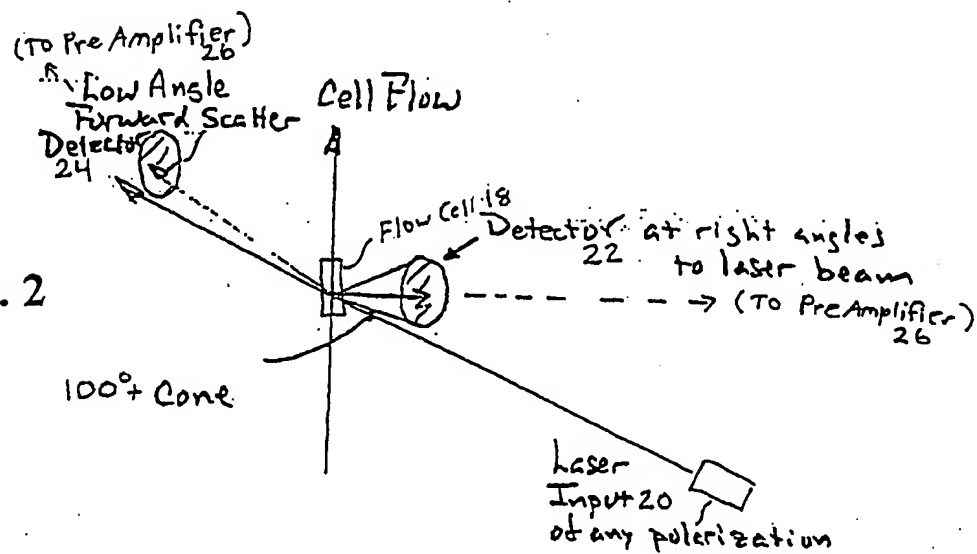 (To Pre Amplifier)
26
Low Angle
Forward Scatter
Detector
24
Cell Flow
Flow Cell 18
Detector at right angles
22 to laser beam
(To PreAmplifier)
26
. 2
100°+ Cone
Laser
Input 20
of any polarization